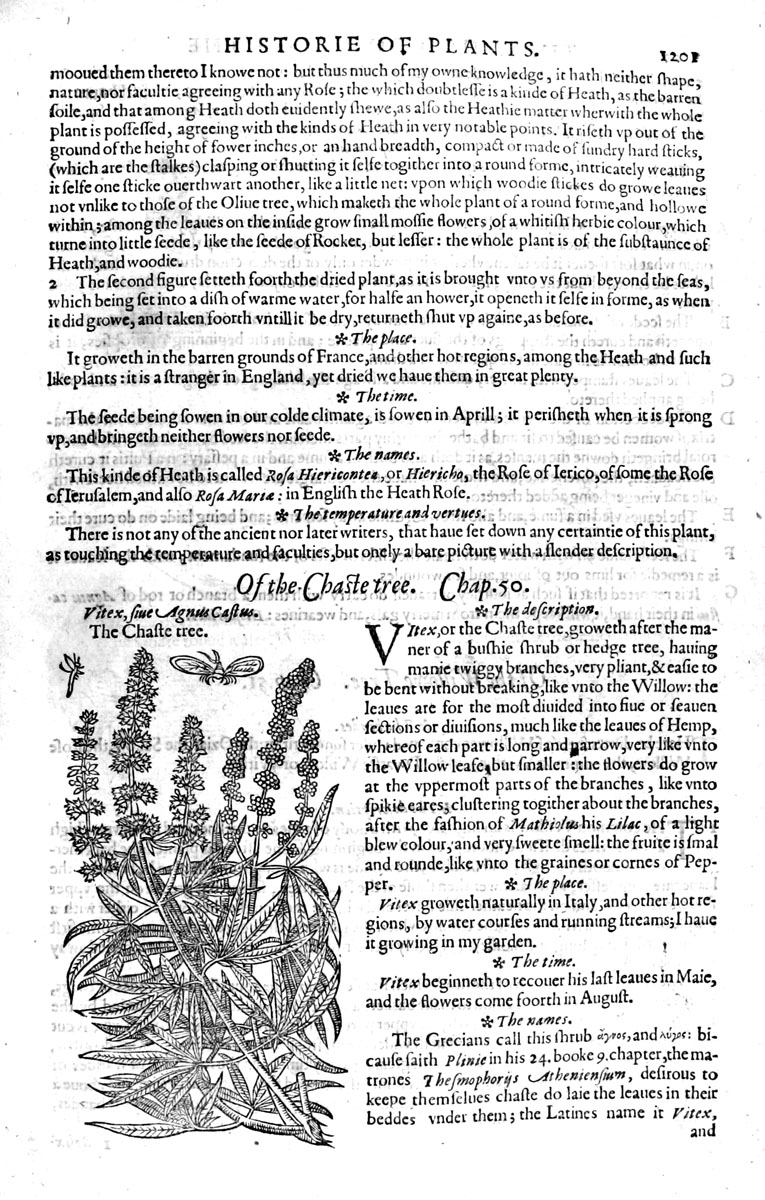 HISTORIE OF PLANTS. 1201
mooued them thereto I knowe not : but thus much of my owne knowledge, it hath neither ſhape,
nature,nor facultie agreeing with any Roſe ; the which doubtleſſe is a kinde of Heath, as the barren
ſoile,and that among Heath doth euidently ſhewe,as alſo the Heathie matter wherwith the whole
plant is poſſeſſed, agreeing with the kinds of Heath in very notable points. It riſeth vp out of the
ground of the height of fower inches,or an hand breadth, compact or made of ſundry hard ſticks,
(which are the ſtalkes) claſping or ſhutting it ſelfe togither into a round forme, intricately weauing
it ſelfe one ſticke ouerthwart another, like a little net: vpon which woodie ſtickes do growe leaues
not vnlike to thoſe of the Oliue tree, which maketh the whole plant of a round forme,and hollowe
within ; among the leaues on the inſide grow ſmall moſſie flowers ,of a whitiſh herbie colour,which
turne into little ſeede, like the ſeede of Rocket, but leſſer : the whole plant is of the ſubſtaunce of
Heath,and woodie.
2 The ſecond figure ſetteth foorth the dried plant,as it is brought vnto vs from beyond the ſeas,
which being ſet into a diſh of warme water,for halfe an hower,it openeth it ſelfe in forme, as when
it did growe, and taken foorth vntill it be dry,returneth ſhut vp againe,as before.
✻ The place.
It groweth in the barren grounds of France,and other hot regions, among the Heath and ſuch
like plants : it is a ſtranger in England , yet dried we haue them in great plenty.
✻ The time.
The ſeede being ſowen in our colde climate, is ſowen in Aprill ; it periſheth when it is ſprong
vp,and bringeth neither flowers nor ſeede.
✻ The names.
This kinde of Heath is called Roſa Hiericontea, or Hiericho, the Roſe of Ierico,of ſome the Roſe
of Ieruſalem,and alſo Roſa Mariæ : in Engliſh the Heath Roſe.
✻ The temperature and vertues.
There is not any of the ancient nor later writers, that haue ſet down any certaintie of this plant,
as touching the temperature and faculties,but onely a bare picture with a ſlender deſcription.
Of the Chaſte tree. Chap.50.
Vitex, ſiue Agnus Caſtus.
The Chaſte tree.
✻ The deſcription.
VItex,or the Chaſte tree,groweth after the ma-
ner of a buſhie ſhrub or hedge tree, hauing
manie twiggy branches,very pliant,& eaſie to
be bent without breaking,like vnto the Willow: the
leaues are for the moſt diuided into fiue or ſeauen
ſections or diuiſions, much like the leaues of Hemp,
whereof each part is long and narrow,very like vnto
the Willow leafe, but ſmaller : the flowers do grow
at the vppermoſt parts of the branches , like vnto
ſpikie eares, cluſtering togither about the branches,
after the faſhion of Mathiolus his Lilac, of a light
blew colour, and very ſweete ſmell: the fruite is ſmal
and rounde, like vnto the graines or cornes of Pep-
per. ✻ The place.
Vitex groweth naturally in Italy,and other hot re-
gions, by water courſes and running ſtreams; I haue
it growing in my garden.
✻ The time.
Vitex beginneth to recouer his laſt leaues in Maie,
and the flowers come foorth in Auguſt.
✻ The names.
The Grecians call this ſhrub ἄγνος, and λύγος: bi-
cauſe ſaith Plinie in his 24. booke 9. chapter,the ma-
trones Theſmophorijs Athenienſium, deſirous to
keepe themſelues chaſte do laie the leaues in their
beddes vnder them ; the Latines name it Vitex,
and